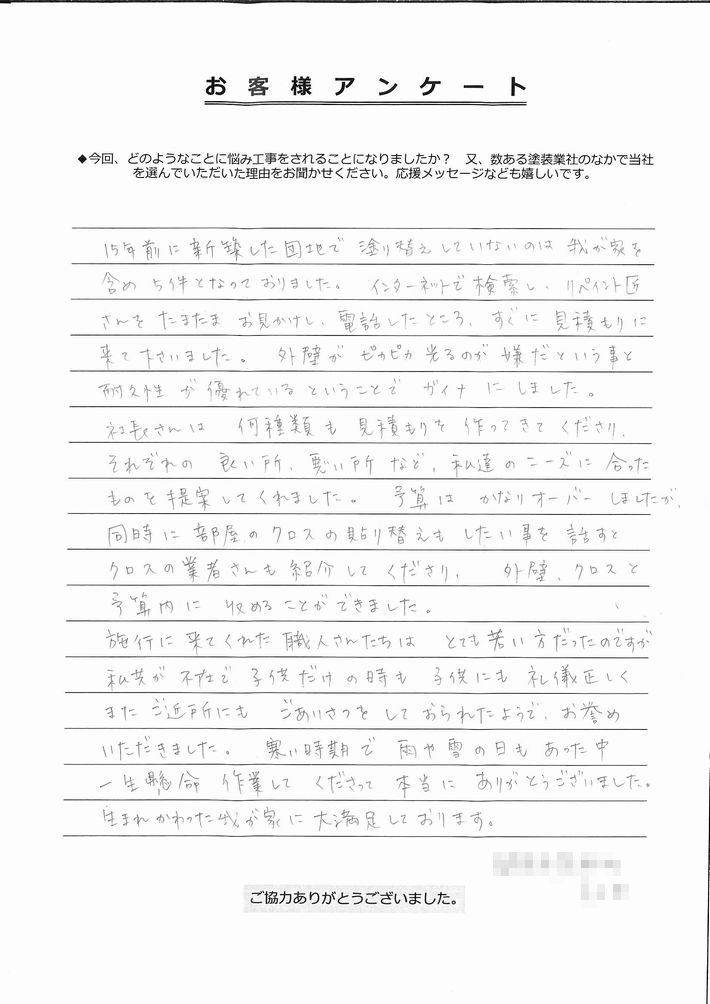 お客様アンケート
◆今回、どのようなことに悩み工事をされることになりましたか？　又、数ある塗装業社のなかで当社
を選んでいただいた理由をお聞かせください。応援メッセージなども嬉しいです。
15年前に新築した団地で 塗り替えしていないのは 我が家を
含め 5件となっておりました。 インターネットで検索し、リペイント匠
さんを たまたま お見かけし、電話したところ、すぐに 見積もりに
来て下さいました。 外壁が ピカピカ 光るのが 嫌だという事と
耐久性が 優れている ということで ガイナ にしました。
社長さんは 何種類も 見積もりを 作ってきて くださり、
それぞれの 良い所、悪い所 など、私達のニーズに 合った
ものを 提案してくれました。 予算は かなりオーバー しましたが、
同時に 部屋のクロスの貼り替えも したい事を 話すと
クロスの業者さんも 紹介して くださり、 外壁、クロスと
予算内に 収めることができました。
施行に 来てくれた 職人さんたちは とても若い方だったのですが
私共が 不在で 子供だけの時も 子供にも 礼儀正しく
また ご近所にも ごあいさつを しておられたようで、お誉め
いただきました。 寒い時期で 雨や雪の日も あった中
一生懸命 作業して くださって 本当に ありがとうございました。
生まれかわった我が家に 大満足しております。
ご協力ありがとうございました。